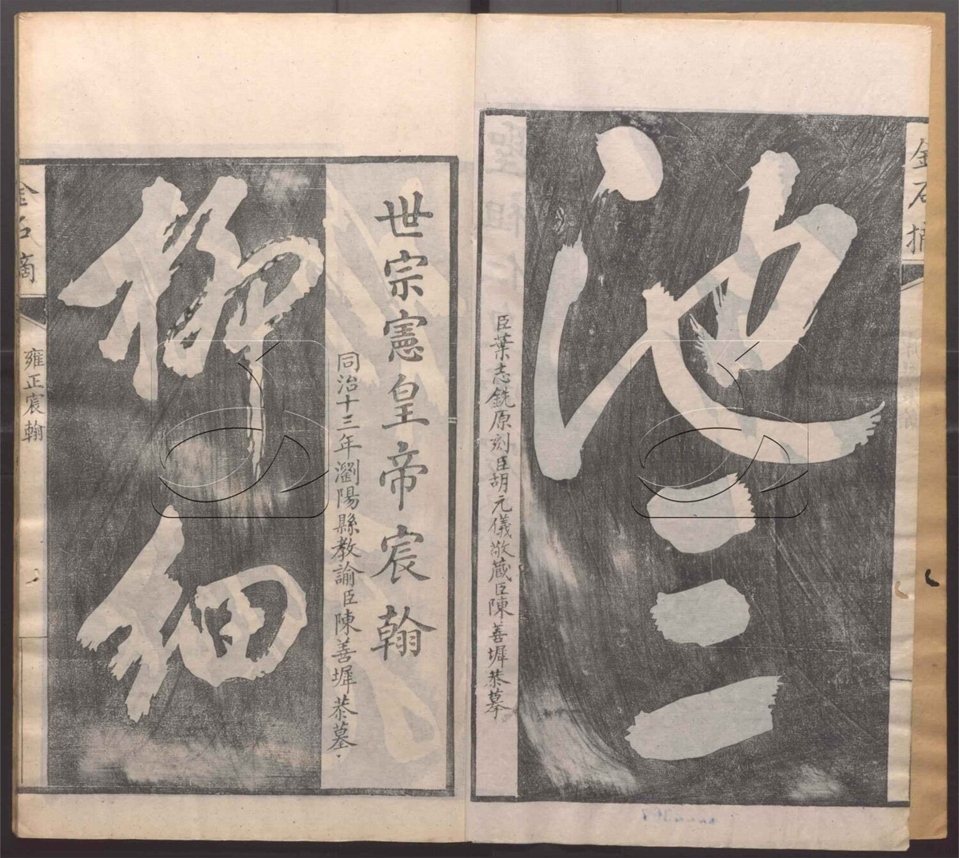 金石摘
池三
臣葉志銑原刻臣胡元儀敬藏臣陳善墀恭摹
世宗憲皇帝宸翰
同治十三年瀏陽縣教諭臣陳善墀恭摹
柳細
金石摘
雍正宸翰